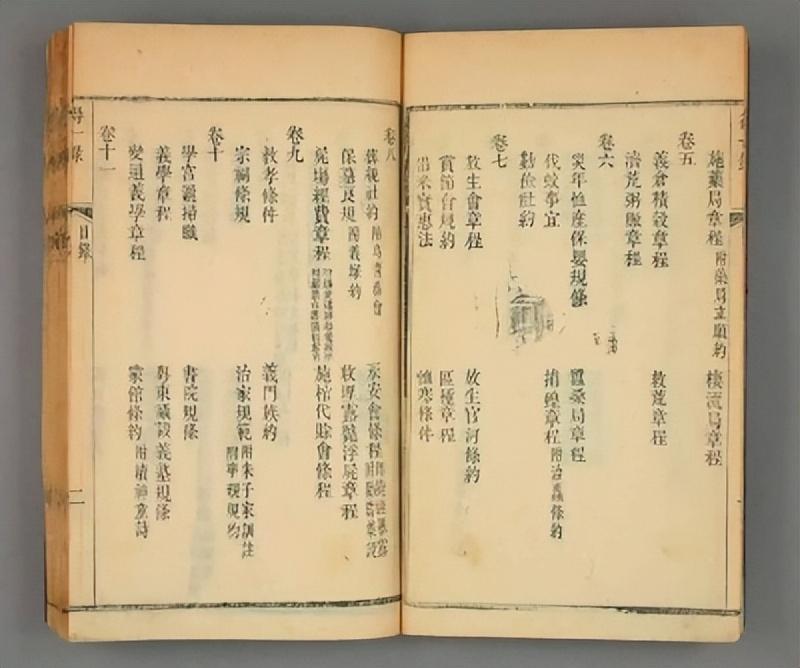 施藥局章程 附藥局立願約 棲流局章程
卷五
義倉積穀章程 救荒章程
濟荒粥賑章程
卷六
災年恤產保嬰規條 蠶桑局章程
伐蛟事宜 捕蝗章程 附治蟲條約
勸儉社約
卷七
放生會章程 放生官河條約
會規約 區種章程
米實惠法 恤寒條件
卷八
葬親社約 永安會條程
保墓良規 附義塚約 收埋露骴浮屍章程
屍場經費章程 施棺代賒會條程
卷九
教孝條件 義門族約
宗祠條規 治家規範 附朱子家訓註
卷十
學宮灑掃職 書院規條
義學章程 粵東議設義塾規條
卷十一
變通義學章程 蒙館條約 附讀神童詩
得一錄 目錄 二